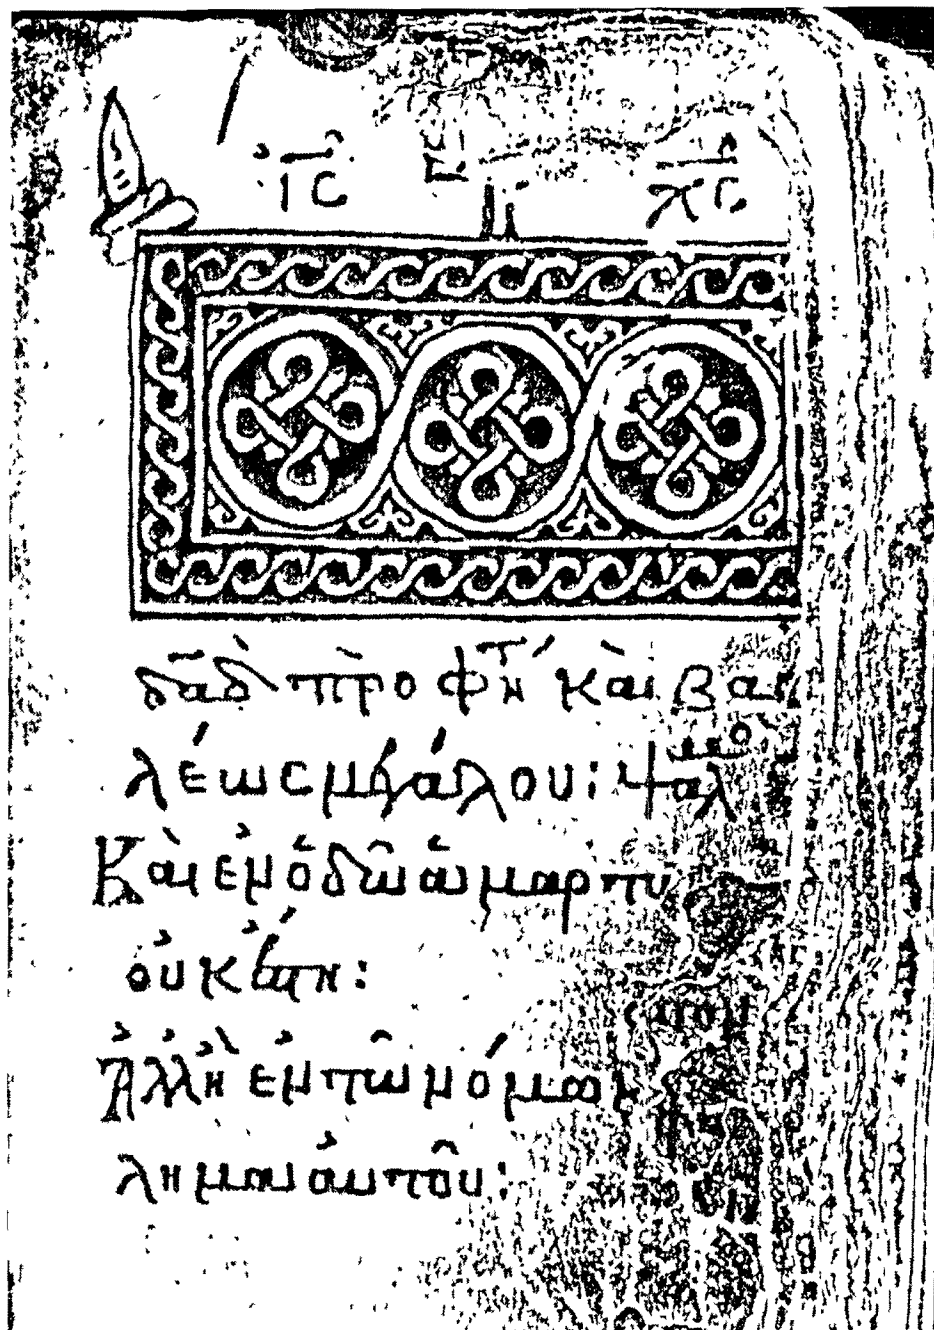 ἸϹ ΧϹ
δᾶδ προφητ καὶ βα
λέως μεγάλου: ψαλμο
Καὶ ἐν ὁδῶ ἁμαρτω
οὐκ ἔστη:
Ἀλλ' ἢ ἐν τῶ νόμω
λημα αὐτοῦ: